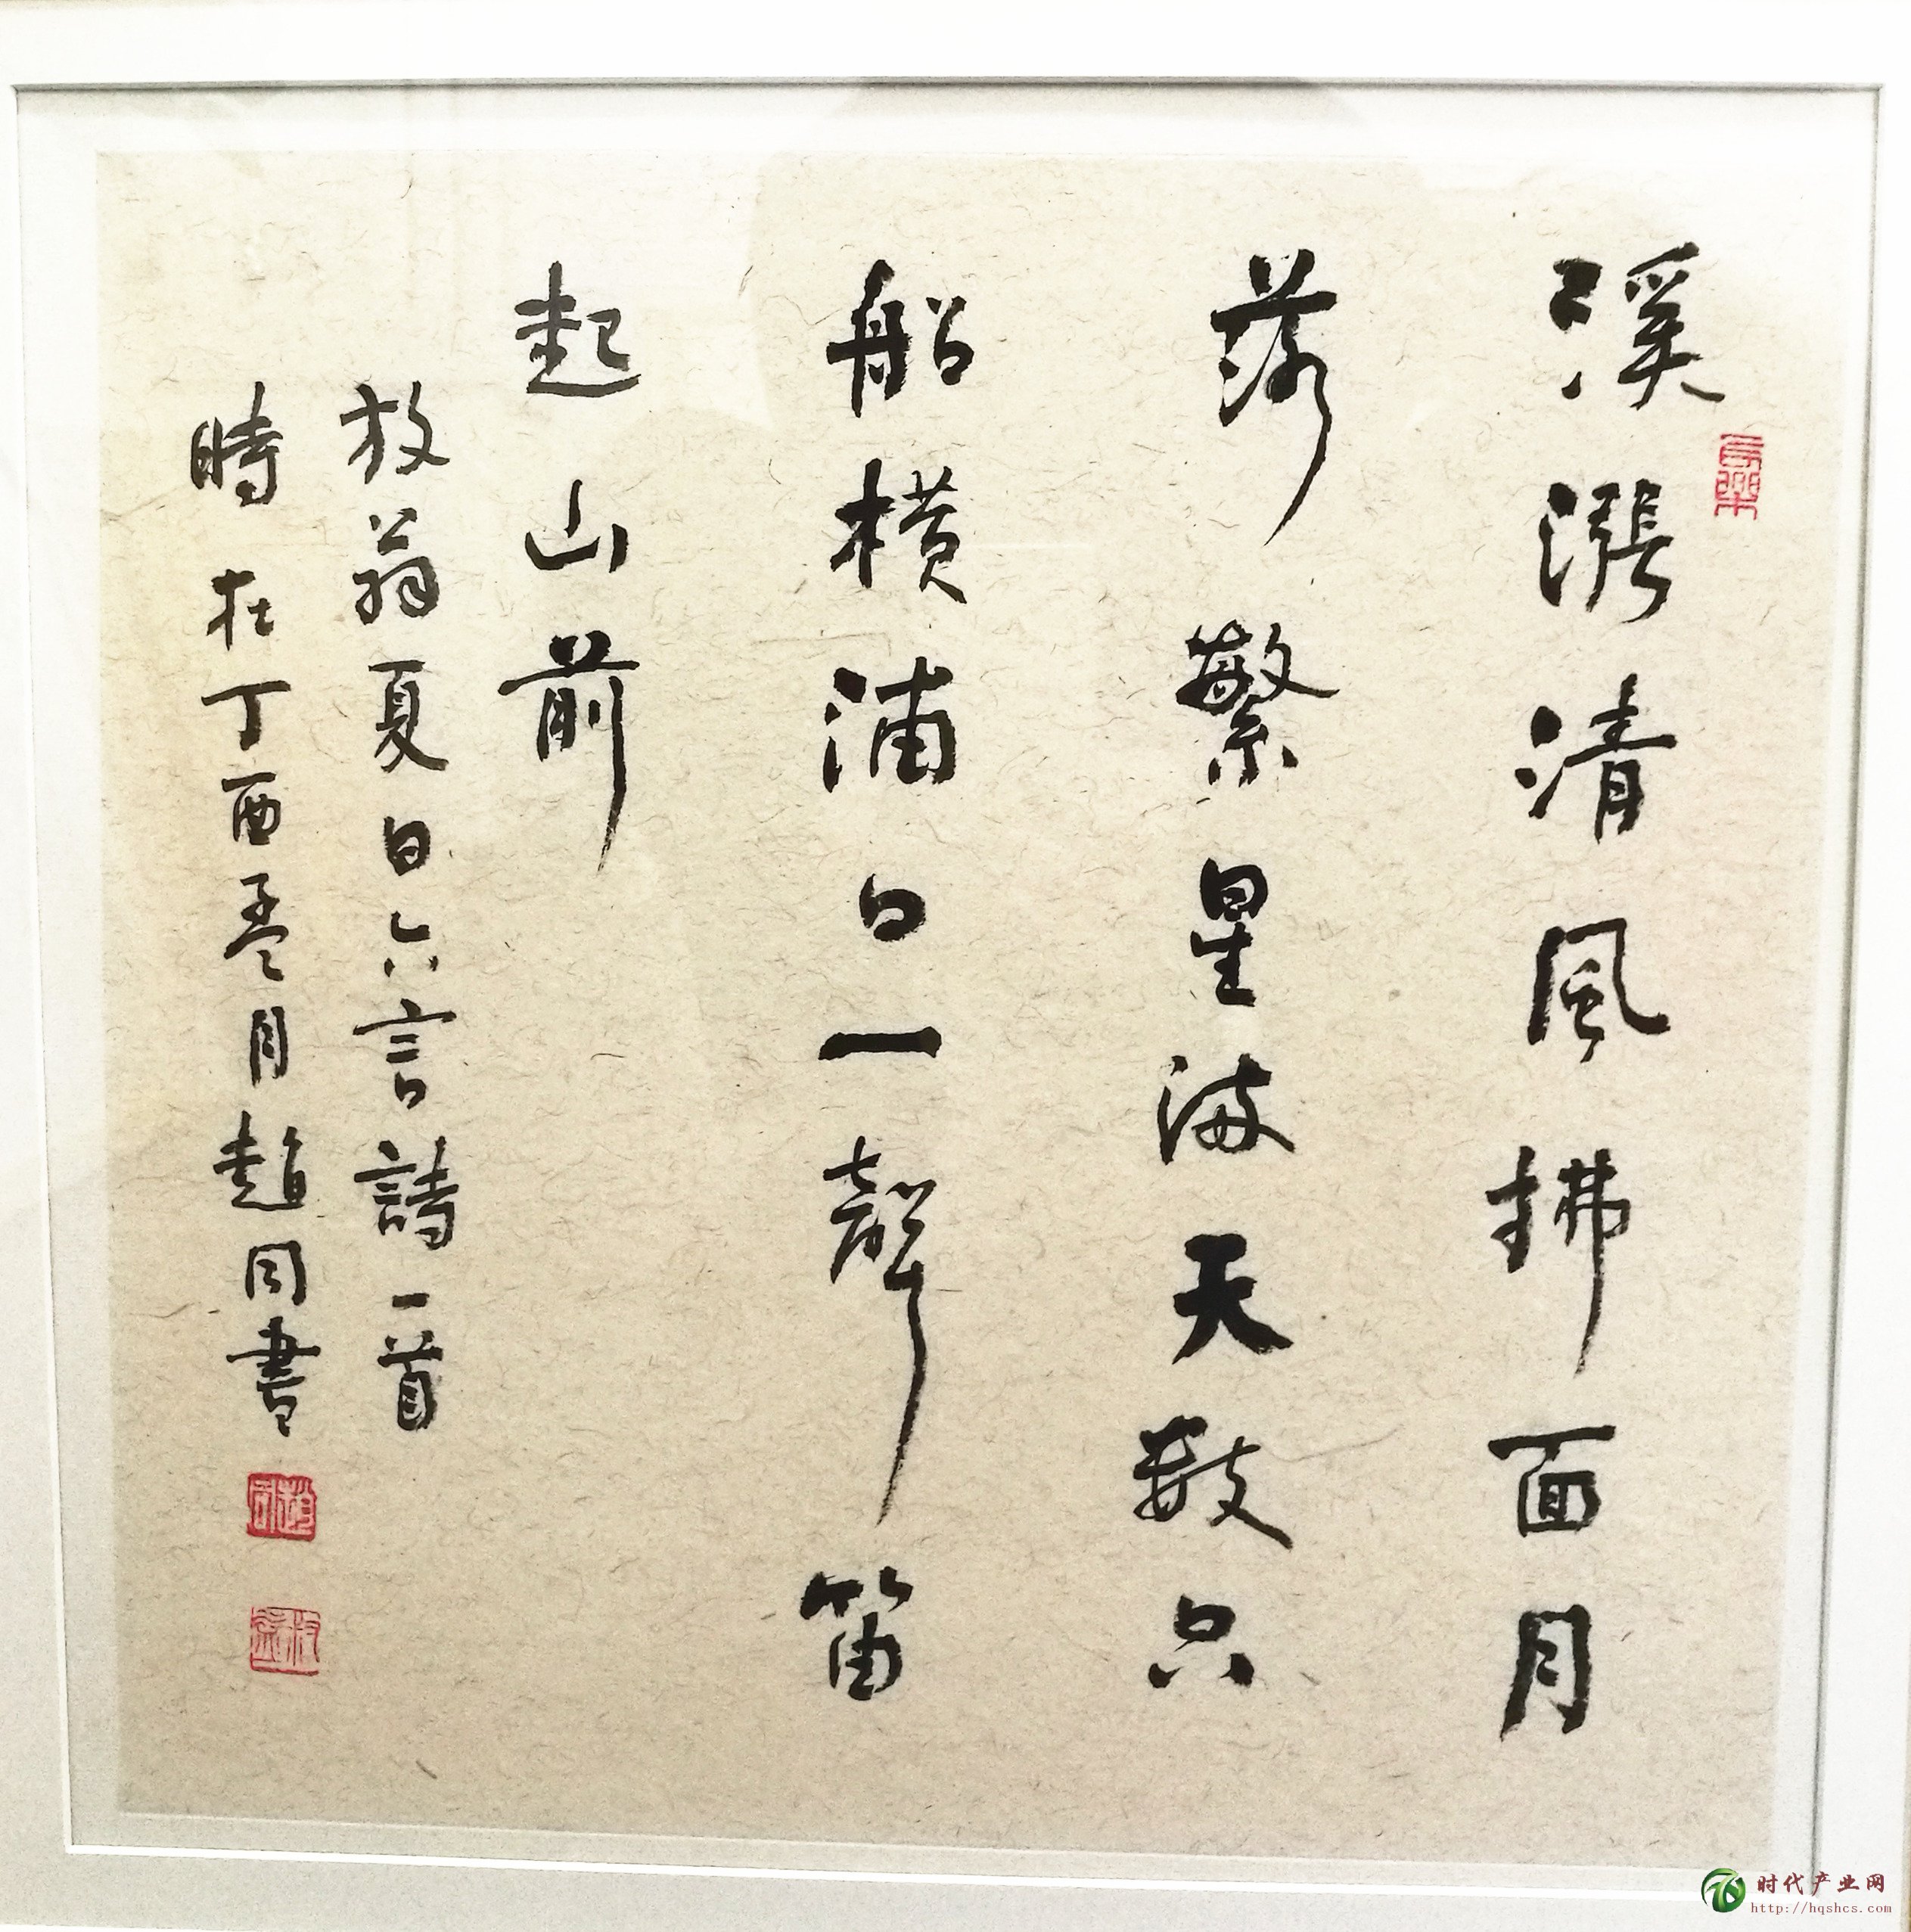 溪漲清風拂面月
落繁星满天数只
船橫浦口一聲笛
起山前
放翁夏日六言詩一首
時在丁酉孟月趙同書
时代产业网
http://hqshcs.com